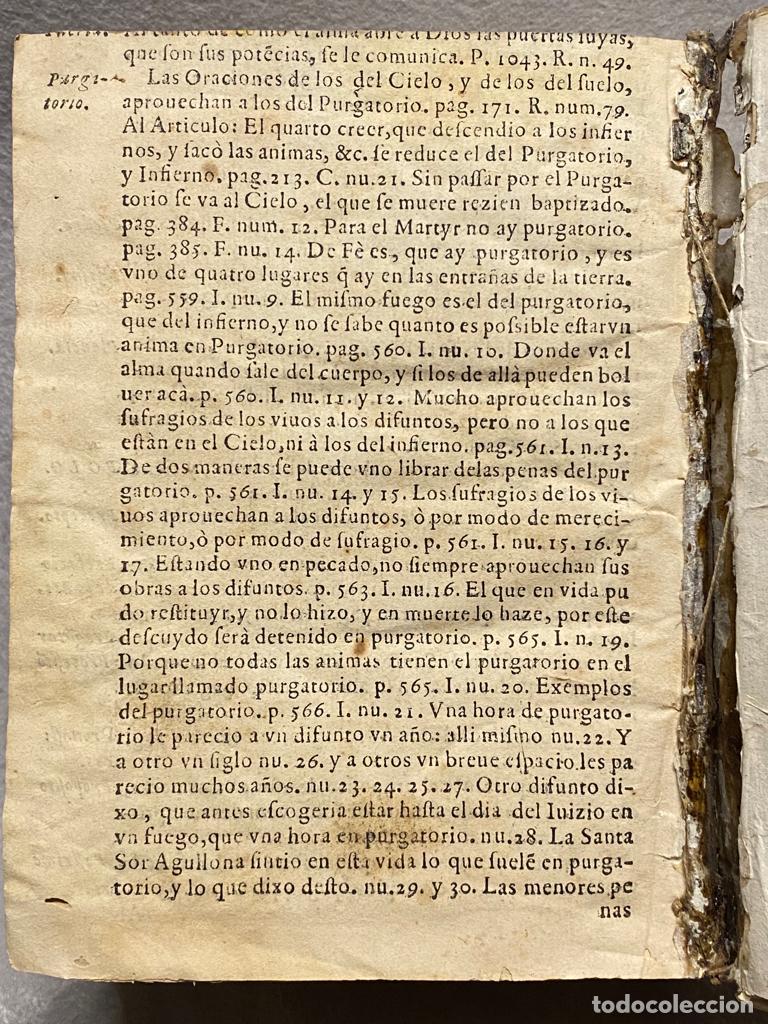 Al tanto de como el alma abre a Dios las puertas suyas,
que son sus potẽcias, se le comunica. P. 1043. R. n. 49.
Purga-
torio.
Las Oraciones de los del Cielo, y de los del suelo,
aprouechan a los del Purgatorio. pag. 171. R. num. 79.
Al Articulo: El quarto creer, que descendio a los infier
nos, y sacò las animas, &c. se reduce el del Purgatorio,
y Infierno. pag. 213. C. nu. 21. Sin passar por el Purga-
torio se va al Cielo, el que se muere rezien baptizado.
pag. 384. F. num. 12. Para el Martyr no ay purgatorio.
pag. 385. F. nu. 14. De Fè es, que ay purgatorio, y es
vno de quatro lugares q̃ ay en las entrañas de la tierra.
pag. 559. I. nu. 9. El mismo fuego es el del purgatorio,
que del infierno, y no se sabe quanto es possible estar vn
anima en Purgatorio. pag. 560. I. nu. 10. Donde va el
alma quando sale del cuerpo, y si los de allà pueden bol
uer acà. p. 560. I. nu. 11. y 12. Mucho aprouechan los
sufragios de los viuos a los difuntos, pero no a los que
estàn en el Cielo, ni à los del infierno. pag. 561. I. n. 13.
De dos maneras se puede vno librar de las penas del pur
gatorio. p. 561. I. nu. 14. y 15. Los sufragios de los vi-
uos aprouechan a los difuntos, ò por modo de mereci-
miento, ò por modo de sufragio. p. 561. I. nu. 15. 16. y
17. Estando vno en pecado, no siempre aprouechan sus
obras a los difuntos. p. 563. I. nu. 16. El que en vida pu
do restituyr, y no lo hizo, y en muerte lo haze, por este
descuydo serà detenido en purgatorio. p. 565. I. n. 19.
Porque no todas las animas tienen el purgatorio en el
lugar llamado purgatorio. p. 565. I. nu. 20. Exemplos
del purgatorio. p. 566. I. nu. 21. Vna hora de purgato-
rio le parecio a vn difunto vn año: alli mismo nu. 22. Y
a otro vn siglo nu. 26. y a otros vn breue espacio les pa
recio muchos años. nu. 23. 24. 25. 27. Otro difunto di-
xo, que antes escogeria estar hasta el dia del Iuizio en
vn fuego, que vna hora en purgatorio. nu. 28. La Santa
Sor Agullona sintio en esta vida lo que suelẽ en purga-
torio, y lo que dixo desto. nu. 29. y 30. Las menores pe
nas
todocoleccion